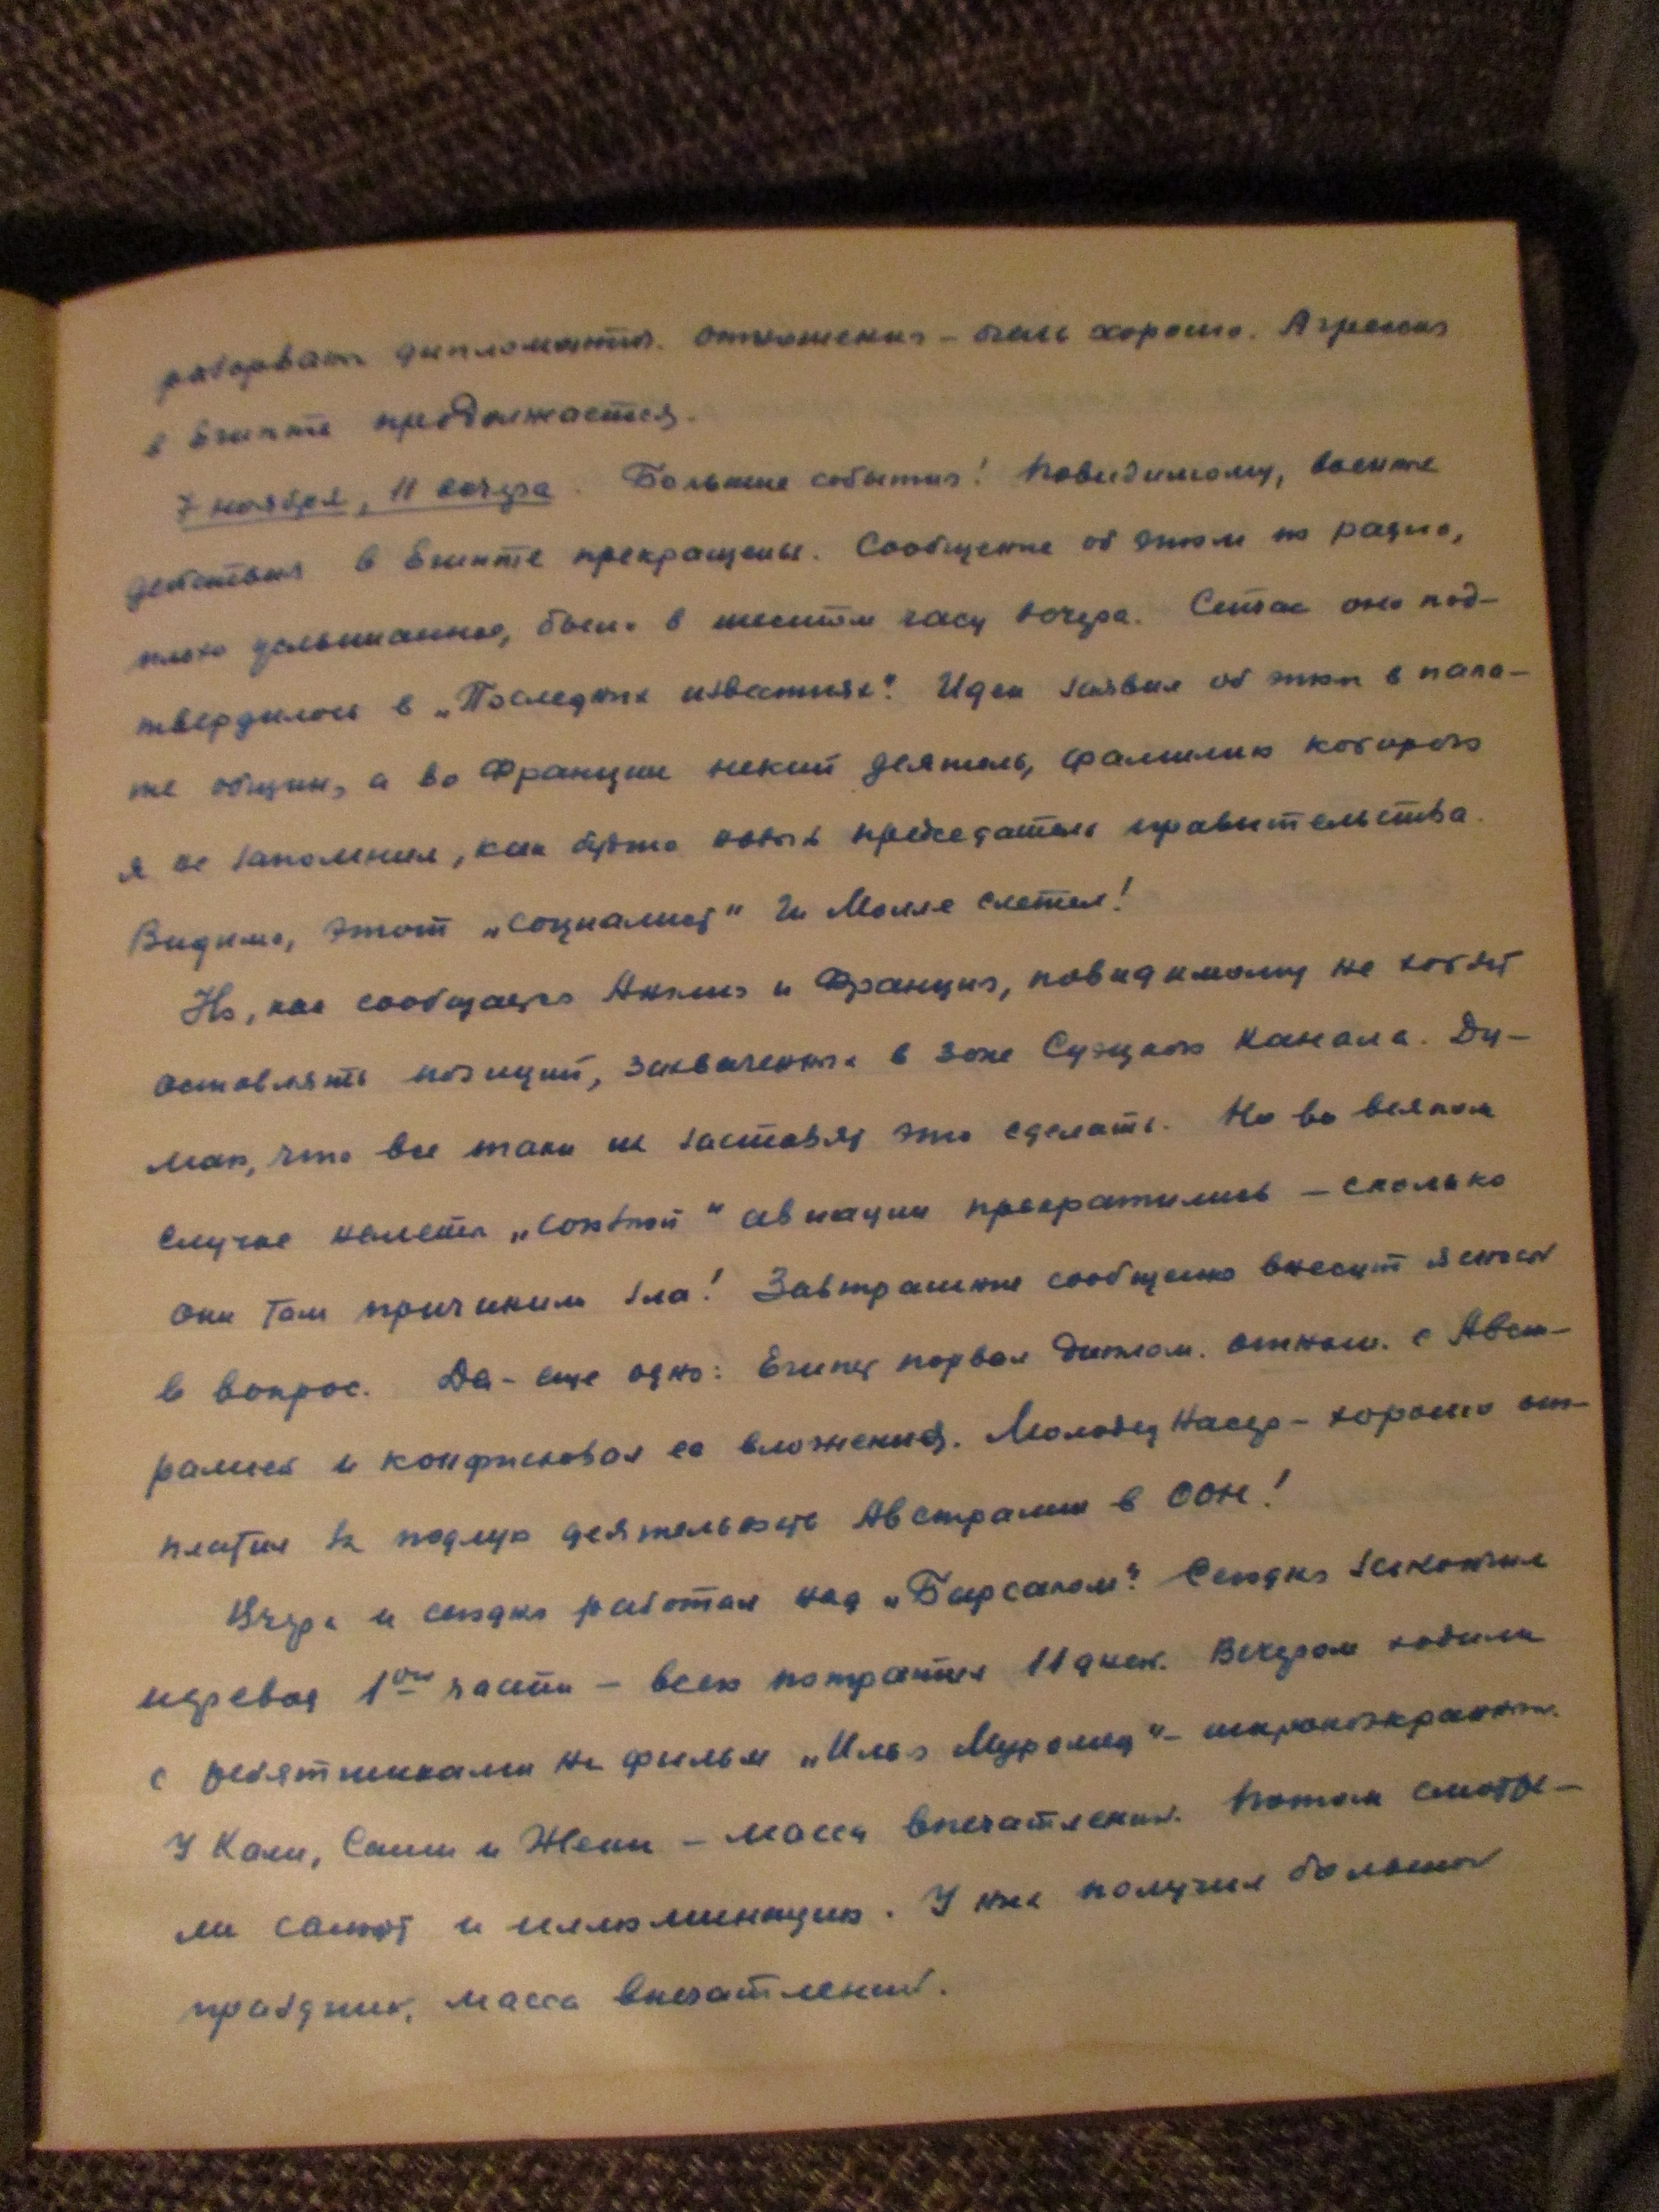 разорвать дипломатич. отношения – очень хорошо. Агрессия
в Египте продолжается.
7 ноября, 11 вечера. Большие события! Повидимому, военные
действия в Египте прекращены. Сообщение об этом по радио,
плохо услышанное, было в шестом часу вечера. Сейчас оно под-
твердилось в „Последних известиях". Иден заявил об этом в пала-
те общин, а во Франции некий деятель, фамилию которого
я не запомнил, как будто новый председатель правительства.
Видимо, этот „социалист" Ги Молле слетел!
Но, как сообщают Англия и Франция, повидимому не хотят
оставлять позиций, захваченных в зоне Суэцкого канала. Ду-
маю, что все таки их заставят это сделать. Но во всяком
случае налеты „союзной" авиации прекратились – сколько
они там причинили зла! Завтрашние сообщения внесут ясность
в вопрос. Да – еще одно: Египет порвал диплом. отнош. с Авст-
ралией и конфисковал ее вложения. Молодец Насер – хорошо от-
платил за подлую деятельность Австралии в ООН!
Вчера и сегодня работал над „Барсаком". Сегодня закончил
перевод 1ой части – всего потратил 11 дней. Вечером ходили
с ребятишками на фильм „Илья Муромец" – широкоэкранный.
У Гали, Саши и Жени – масса впечатлений. Потом смотре-
ли салют и иллюминацию. У них получился большой
праздник, масса впечатлений.